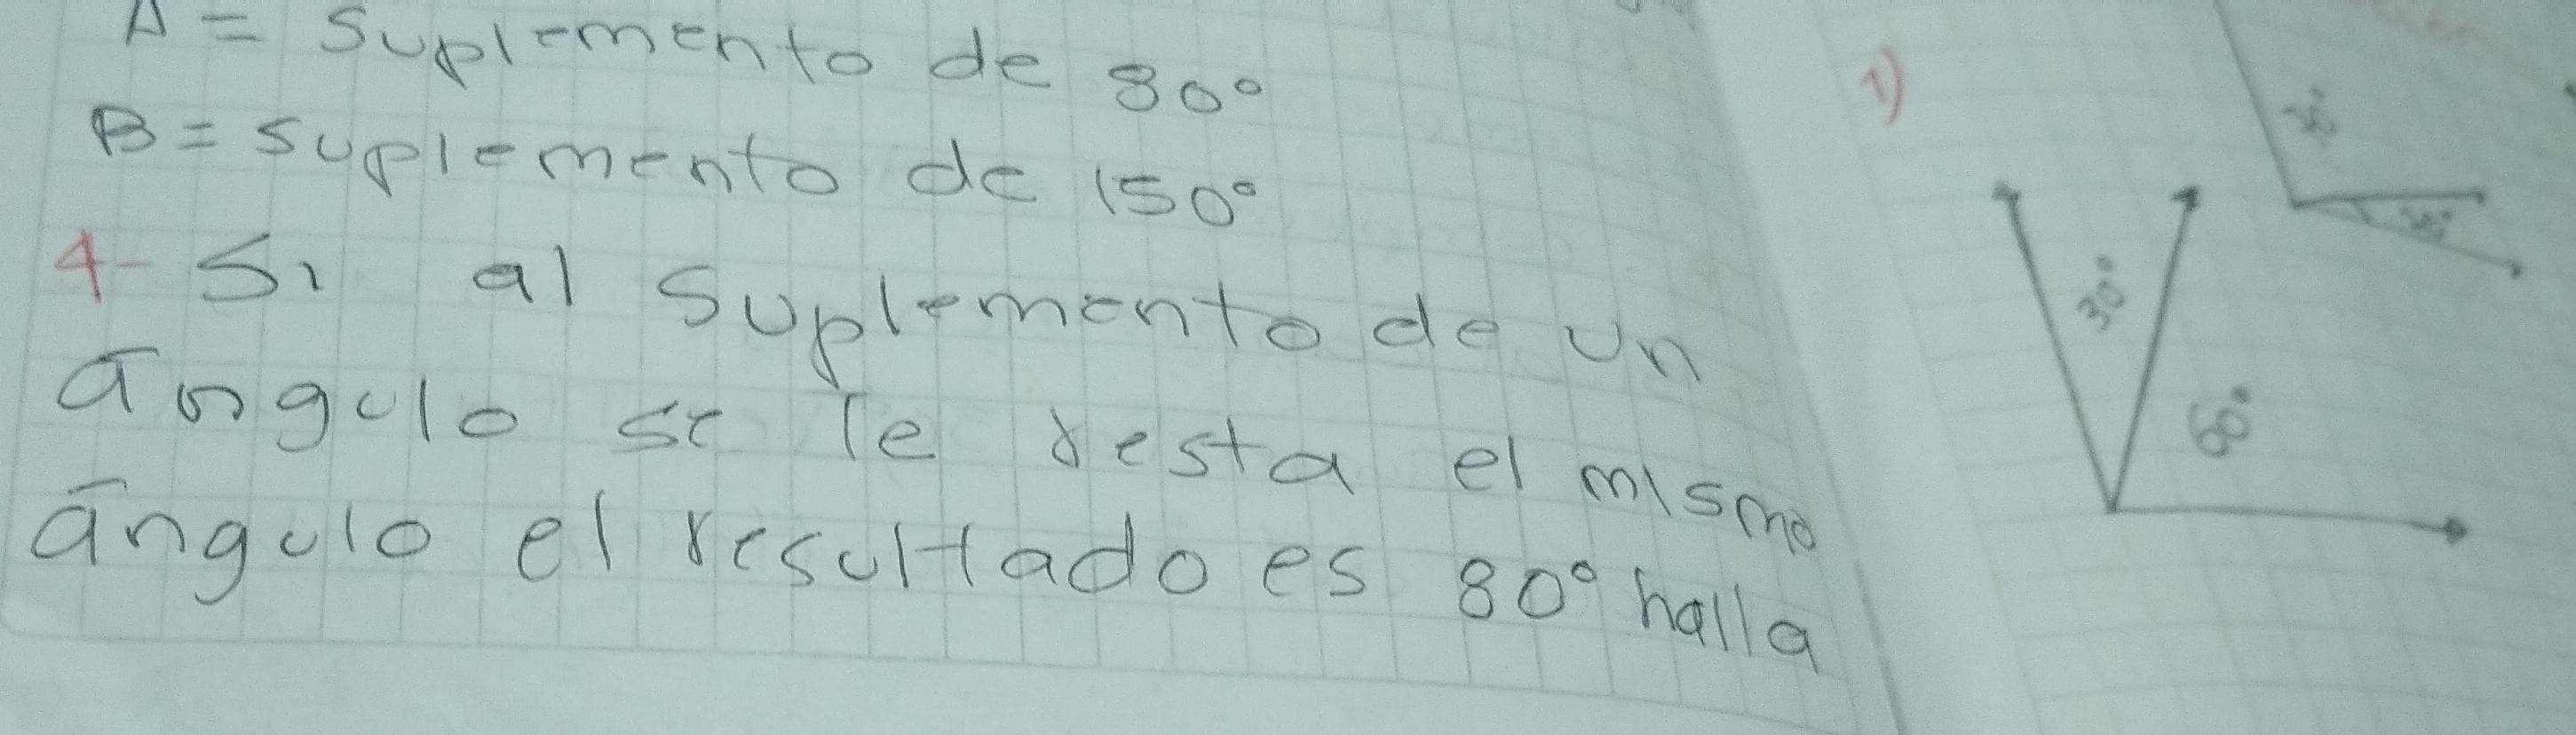 A = Suplemento de 80°
B = suplemento de 150°
4- Si al suplemento de un
ángulo se le resta el mismo
ángulo el resultado es 80° halla
1)
30°
60°